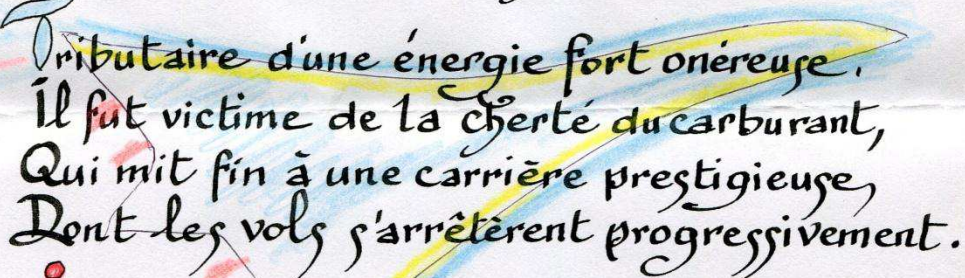 Tributaire d'une énergie fort onéreuse.
Il fut victime de la cherté du carburant,
Qui mit fin à une carrière prestigieuse,
Dont les vols s'arrêtèrent progressivement.